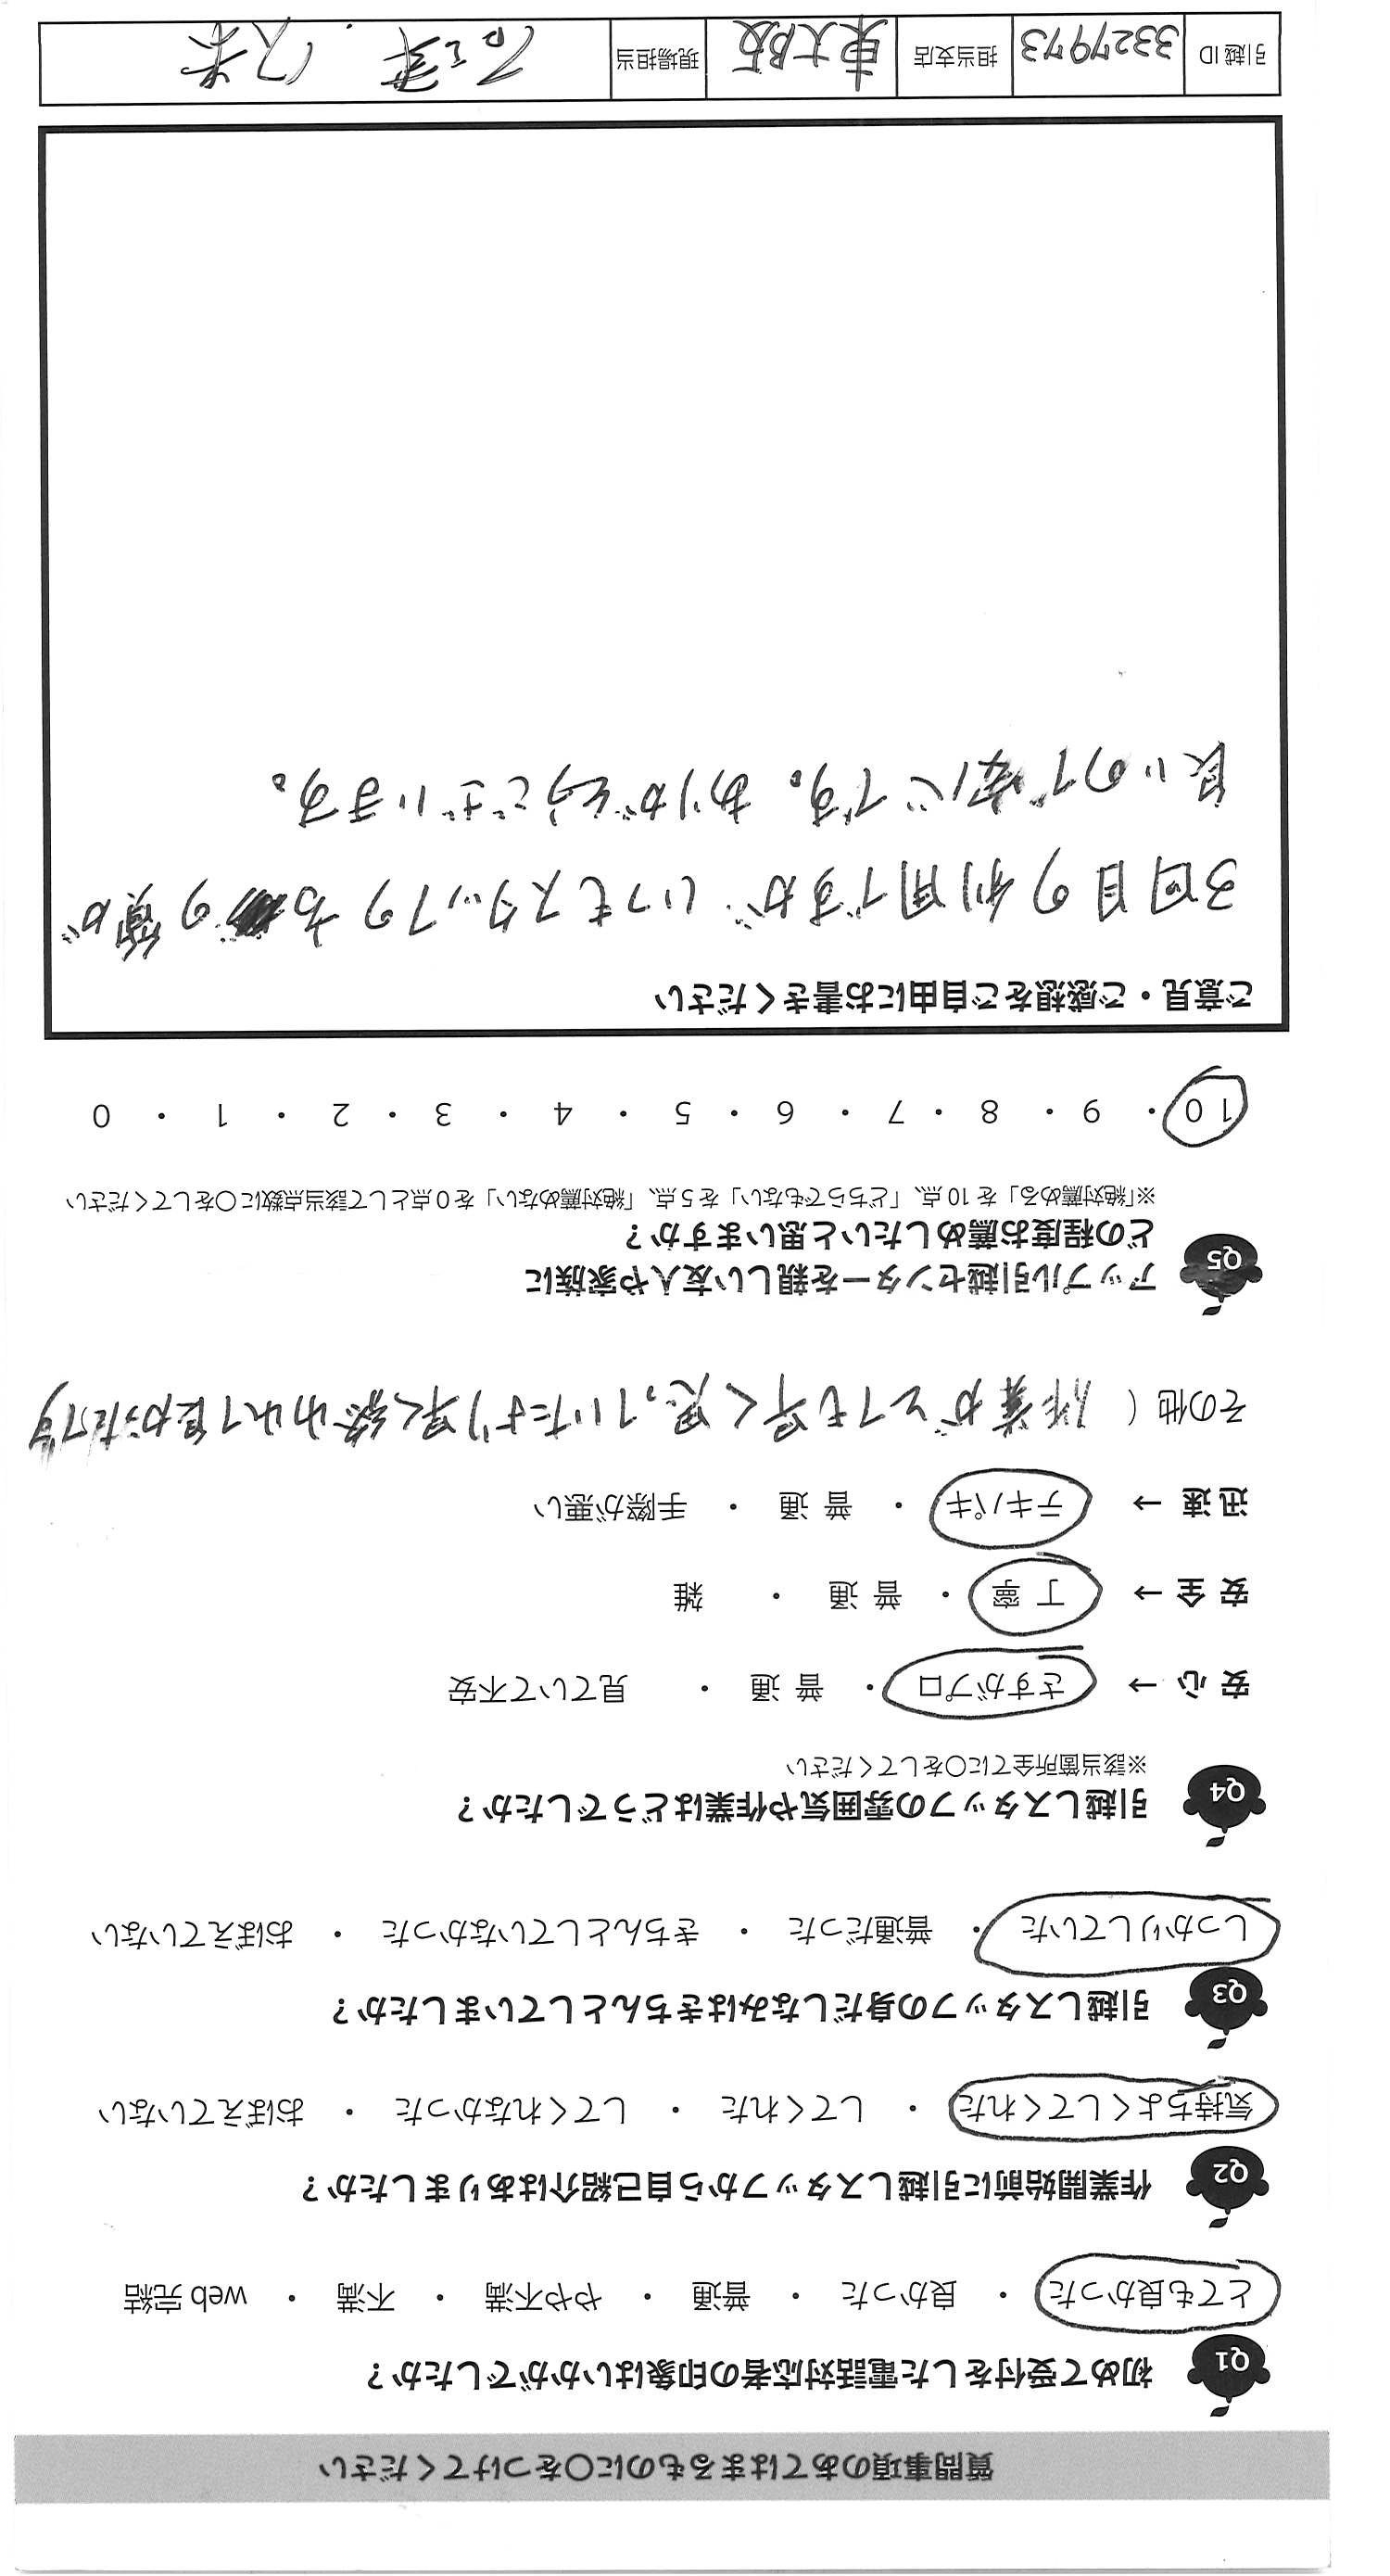 質問事項のあてはまるものに〇をつけてください
Q1 初めて受付をした電話対応者の印象はいかがでしたか？
とても良かった ・ 良かった ・ 普通 ・ やや不満 ・ 不満 ・ web 完結
Q2 作業開始前に引越しスタッフから自己紹介はありましたか？
気持ちよくしてくれた ・ してくれた ・ してくれなかった ・ おぼえていない
Q3 引越しスタッフの身だしなみはきちんとしていましたか？
しっかりしていた ・ 普通だった ・ きちんとしていなかった ・ おぼえていない
Q4 引越しスタッフの雰囲気や作業はどうでしたか？
※該当箇所全てに〇をしてください
安 心 → さすがプロ ・ 普 通 ・ 見ていて不安
安 全 → 丁 寧 ・ 普 通 ・ 雑
迅 速 → テキパキ ・ 普 通 ・ 手際が悪い
その他（ 作業がとても早く思っていたより早く終われて良かったです
Q5 アップル引越センターを親しい友人や家族に
どの程度お薦めしたいと思いますか？
※「絶対薦める」を 10 点、「どちらでもない」を 5 点、「絶対薦めない」を 0 点として該当点数に〇をしてください
10 ・ 9 ・ 8 ・ 7 ・ 6 ・ 5 ・ 4 ・ 3 ・ 2 ・ 1 ・ 0
ご意見・ご感想をご自由にお書きください
3回目の利用ですが いつもスタッフの方の が
良いので安心です。ありがとうございます。
引越 ID 3327973 担当支店 東大阪 現場担当